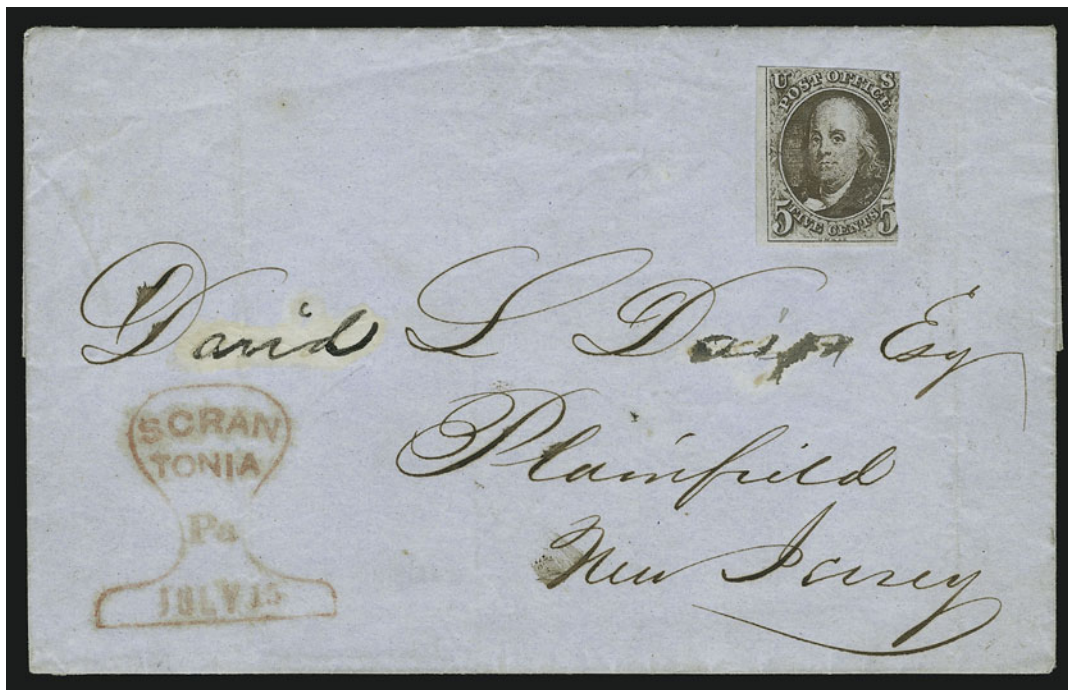 U S
POST OFFICE
5 FIVE CENTS 5
David L Esq
Plainfield
New Jersey
SCRAN
TONIA
Pa
JULY 15